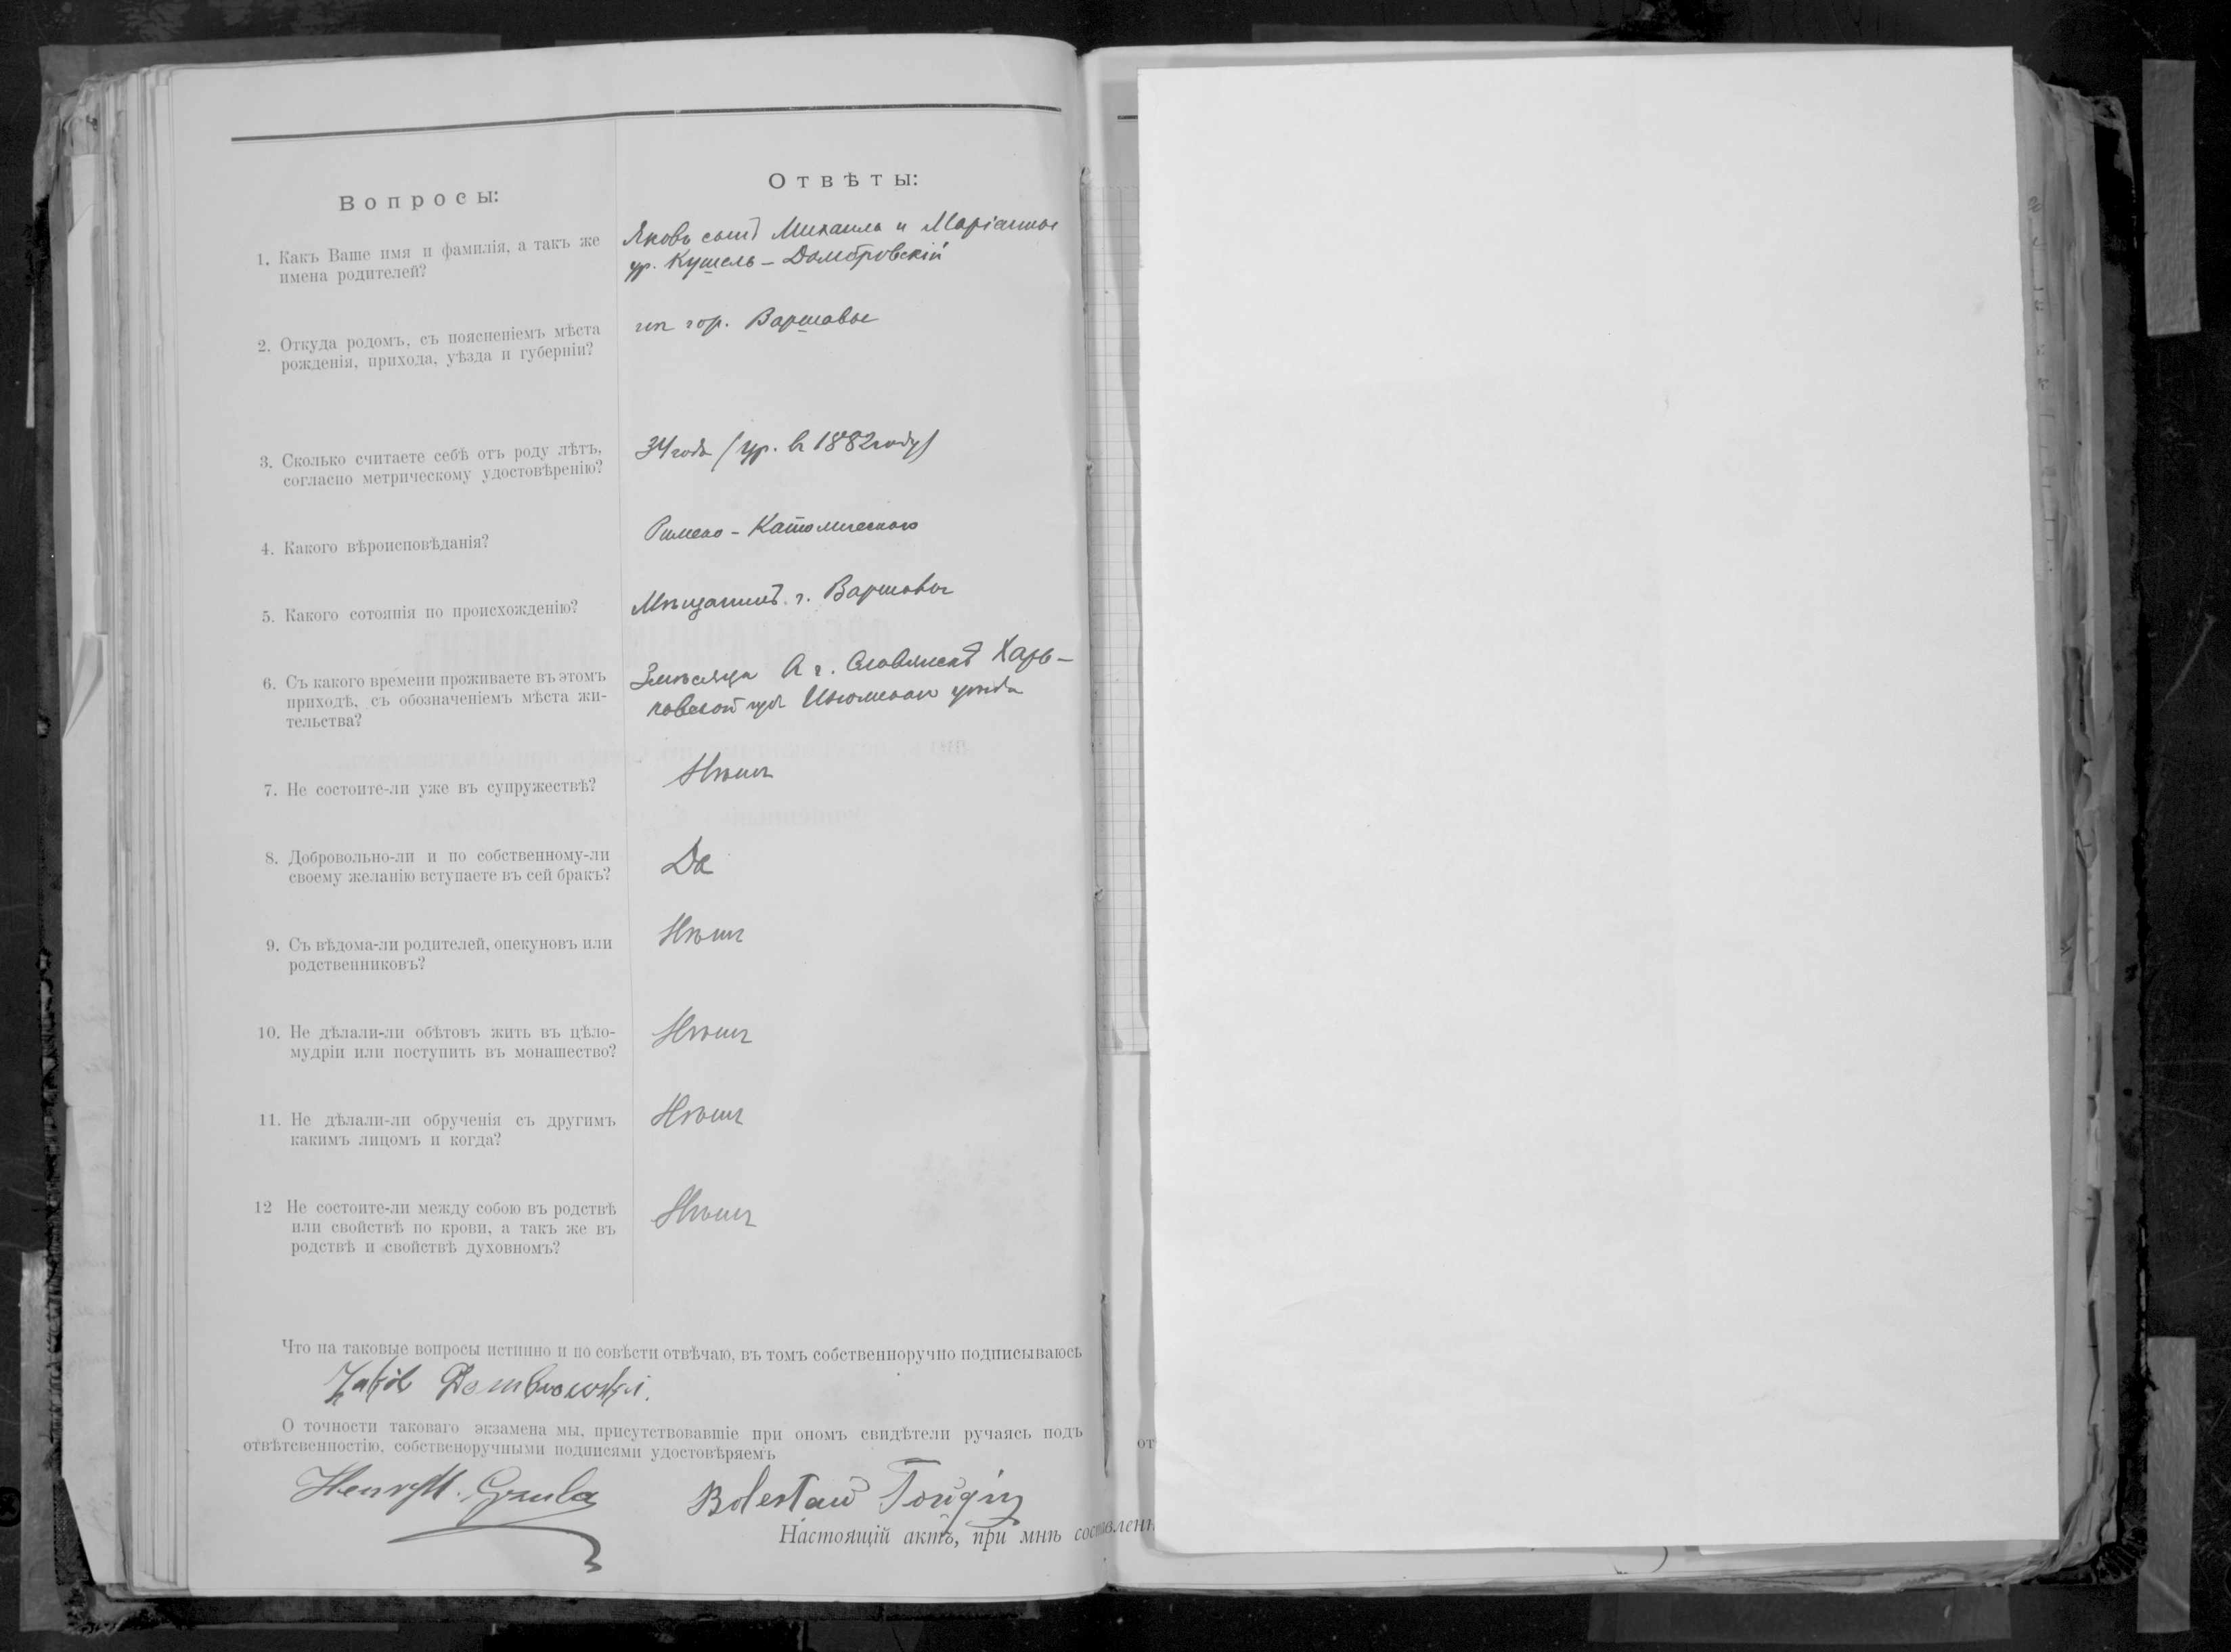 Вопросы:
Отвѣты:
1. Какъ Ваше имя и фамилія, а такъ же
имена родителей?
Яковъ сынъ Михаила и Маріанны
ур. Кушель – Домбровскій
2. Откуда родомъ, съ поясненіемъ мѣста
рожденія, прихода, уѣзда и губерніи?
гор. Варшавы
3. Сколько считаете себѣ отъ роду лѣтъ,
согласно метрическому удостовѣренію?
34 года (ур. в 1882 году)
4. Какого вѣроисповѣданія?
Римско - Католическаго
5. Какого сотоянія по происхожденію?
Мѣщанинъ г. Варшавы
6. Съ какого времени проживаете въ этомъ
приходѣ, съ обозначеніемъ мѣста жи-
тельства?
3 мѣсяца В г. Славянскѣ Харь-
ковской губ Изюмскаго уѣзда
7. Не состоите-ли уже въ супружествѣ?
Нѣтъ
8. Добровольно-ли и по собственному-ли
своему желанію вступаете въ сей бракъ?
Да
9. Съ вѣдома-ли родителей, опекуновъ или
родственниковъ?
Нѣтъ
10. Не дѣлали-ли обѣтовъ жить въ цѣло-
мудріи или поступить въ монашество?
Нѣтъ
11. Не дѣлали-ли обрученія съ другимъ
какимъ лицомъ и когда?
Нѣтъ
12 Не состоите-ли между собою въ родствѣ
или свойствѣ по крови, а такъ же въ
родствѣ и свойствѣ духовномъ?
Нѣтъ
Что на таковые вопросы истинно и по совѣсти отвѣчаю, въ томъ собственноручно подписываюсь
Jakób Dombrowski.
О точности таковаго экзамена мы, присутствовавшіе при ономъ свидѣтели ручаясь подъ
отвѣтсвенностію, собственоручными подписями удостовѣряемъ
Bolesław
Настоящій актъ, при мнѣ составлен
от